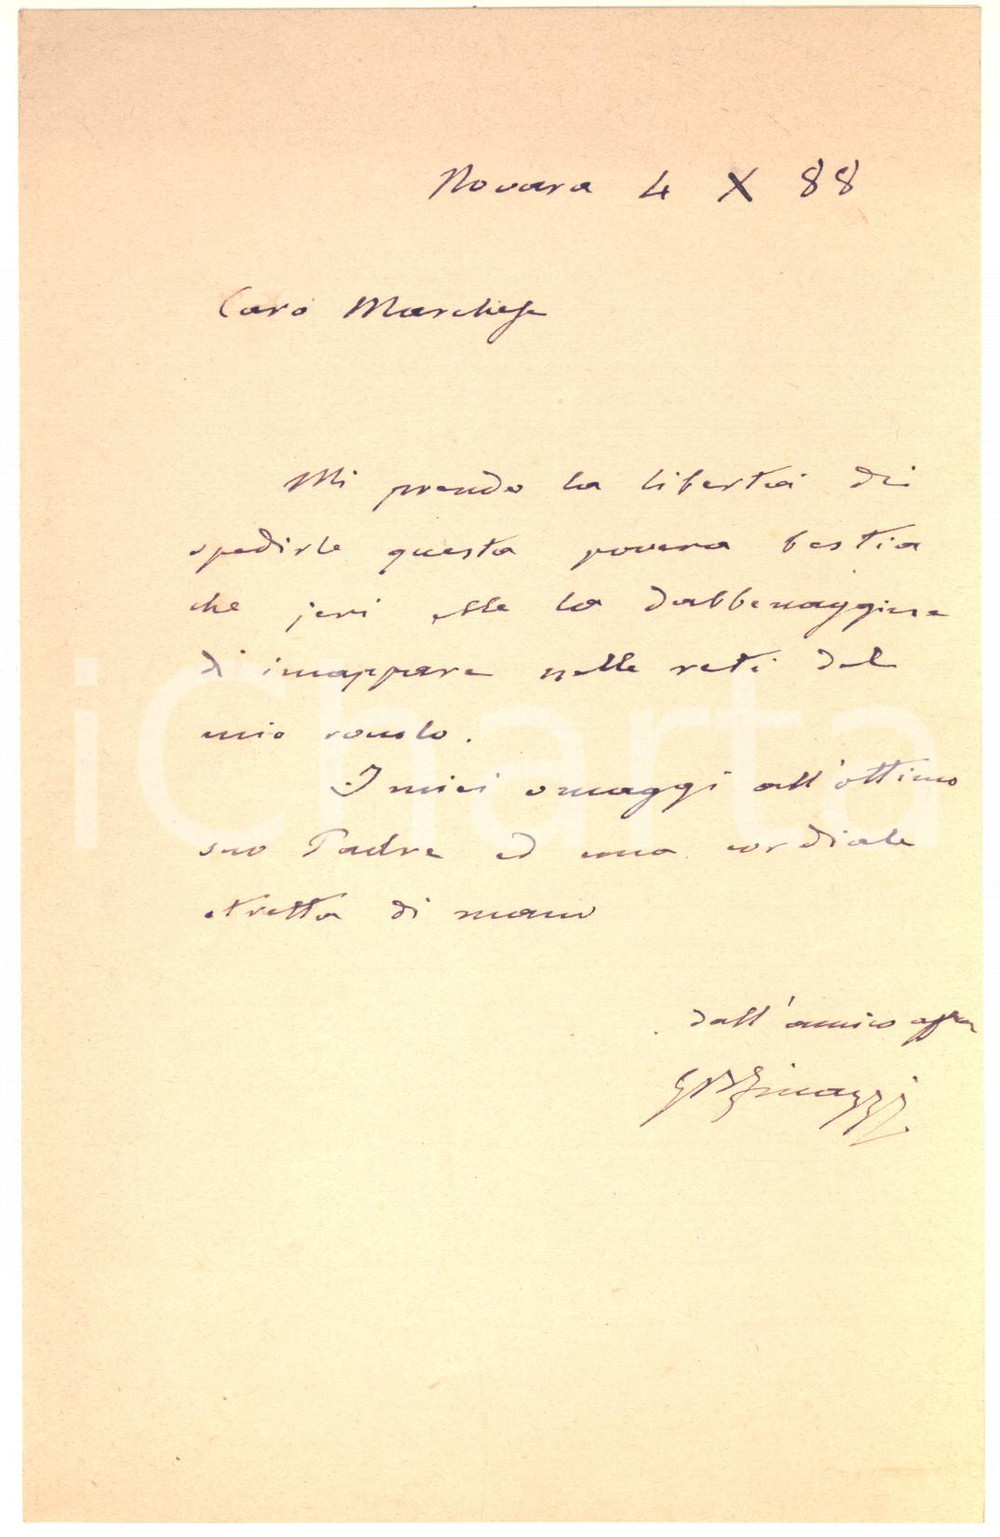 Novara 4 X 88
Caro Marchese
Mi prendo la libertà di
spedirle questa povera bestia
che jeri ebbe la dabbenaggine
di incappare nelle reti del
mio roccolo.
I miei omaggi all'ottimo
suo Padre ed una cordiale
stretta di mano
dall'amico
iCharta